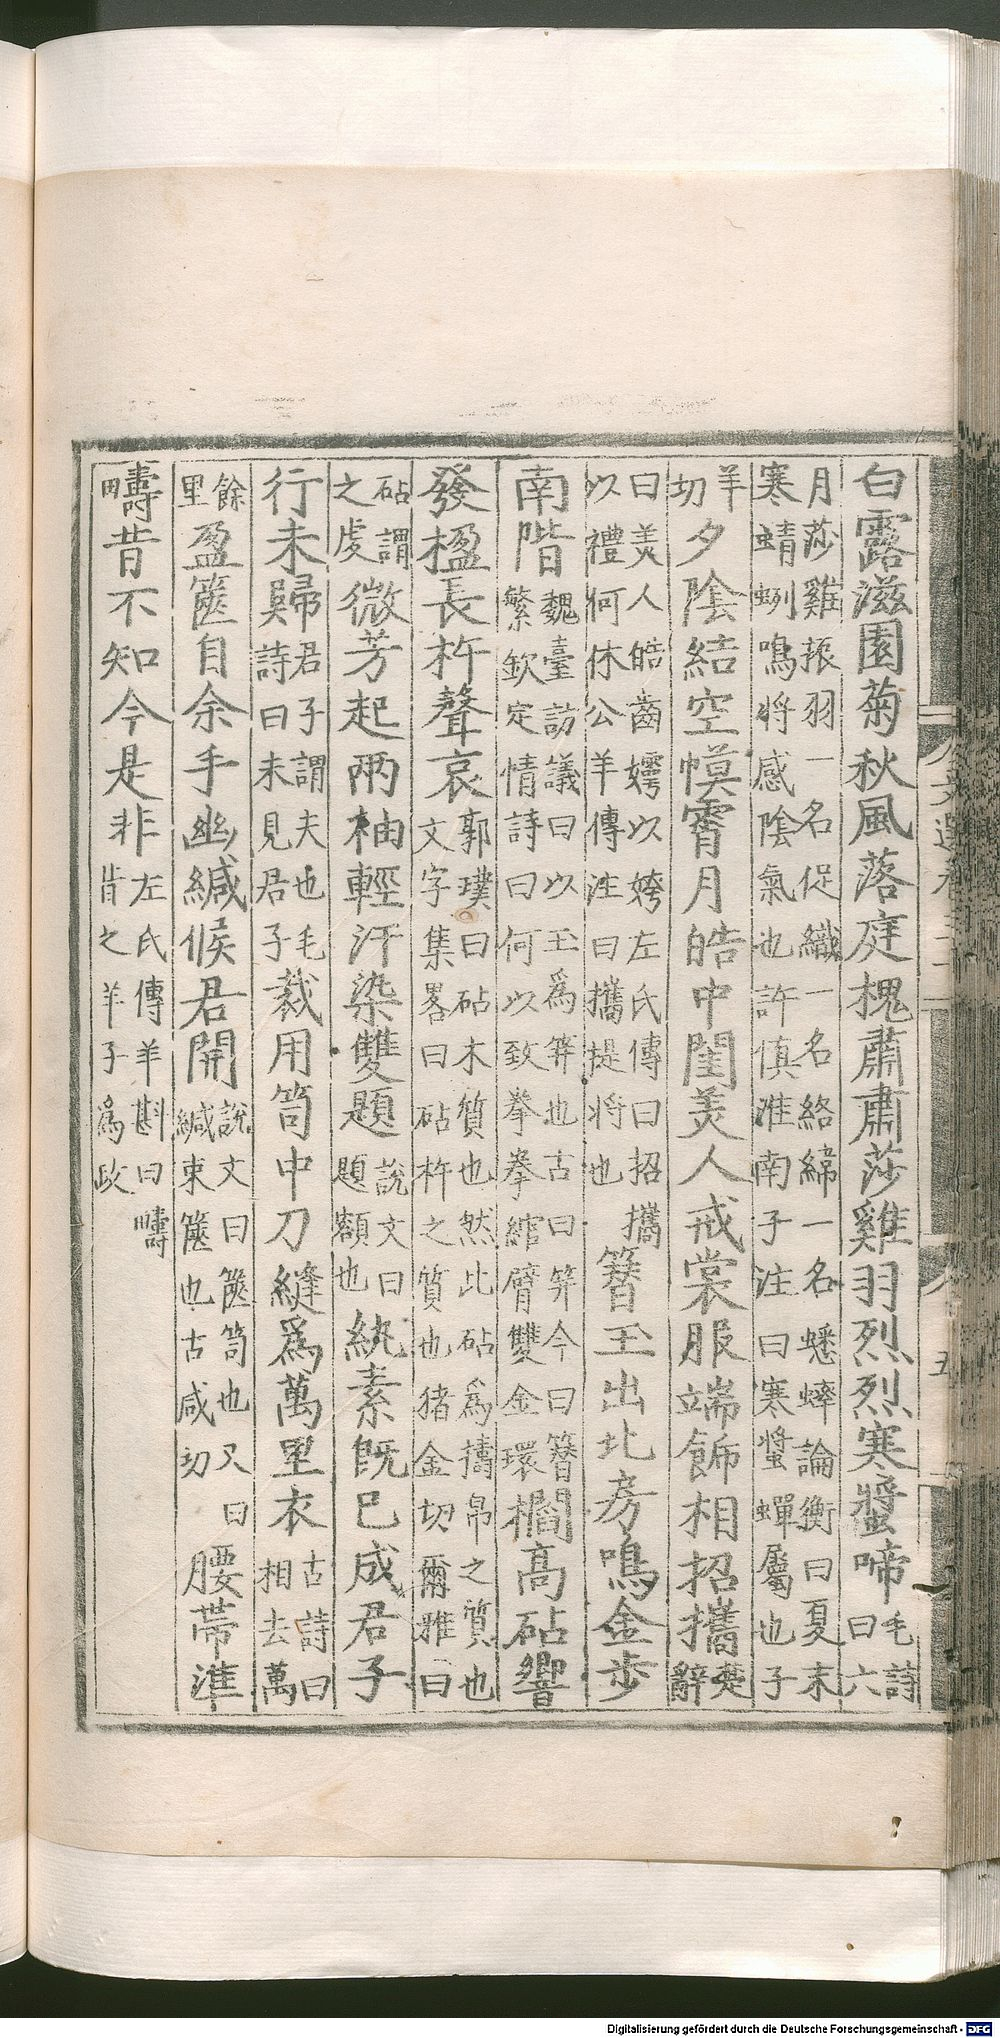 白露滋園菊秋風落庭槐肅肅莎雞羽烈烈寒螿啼毛詩曰六
月莎雞振羽一名促織一名絡緯一名蟋蟀論衡曰夏末
寒蜻蛚鳴將感陰氣也許慎淮南子注曰寒螿蟬屬也子
羊切夕陰結空幙霄月皓中閨美人戒裳服端飾相招攜楚辭
曰美人皓齒嫮以姱左氏傳曰招攜
以禮何休公羊傳注曰攜提將也簪玉出北房鳴金步
南階魏臺訪議曰以玉為笄也古曰笄今曰簪
繁欽定情詩曰何以致拳拳綰臂雙金環櫩高砧響
發楹長杵聲哀郭璞曰砧木質也然此砧為擣帛之質也
文字集畧曰砧杵之質也猪金切爾雅曰
砧謂之虔微芳起兩袖輕汗染雙題說文曰題額也紈素旣已成君子
行未歸君子謂夫也毛詩曰未見君子裁用笥中刀縫為萬里衣古詩曰相去萬
餘里盈篋自余手幽緘候君開說文曰篋笥也又曰緘束篋也古咸切腰帶準
疇昔不知今是非左氏傳羊斟曰疇昔之羊子為政
田疇
文選卷三十
五
Digitalisierung gefördert durch die Deutsche Forschungsgemeinschaft - DFG